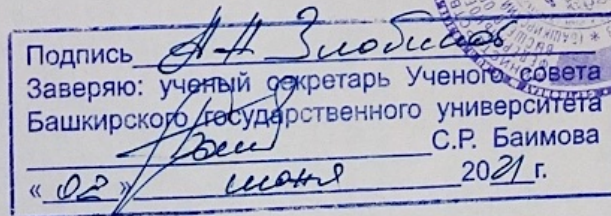 Подпись А.Н. Злобина
Заверяю: ученый секретарь Ученого совета
Башкирского государственного университета
С.Р. Баимова
« 02 » июня 2021 г.